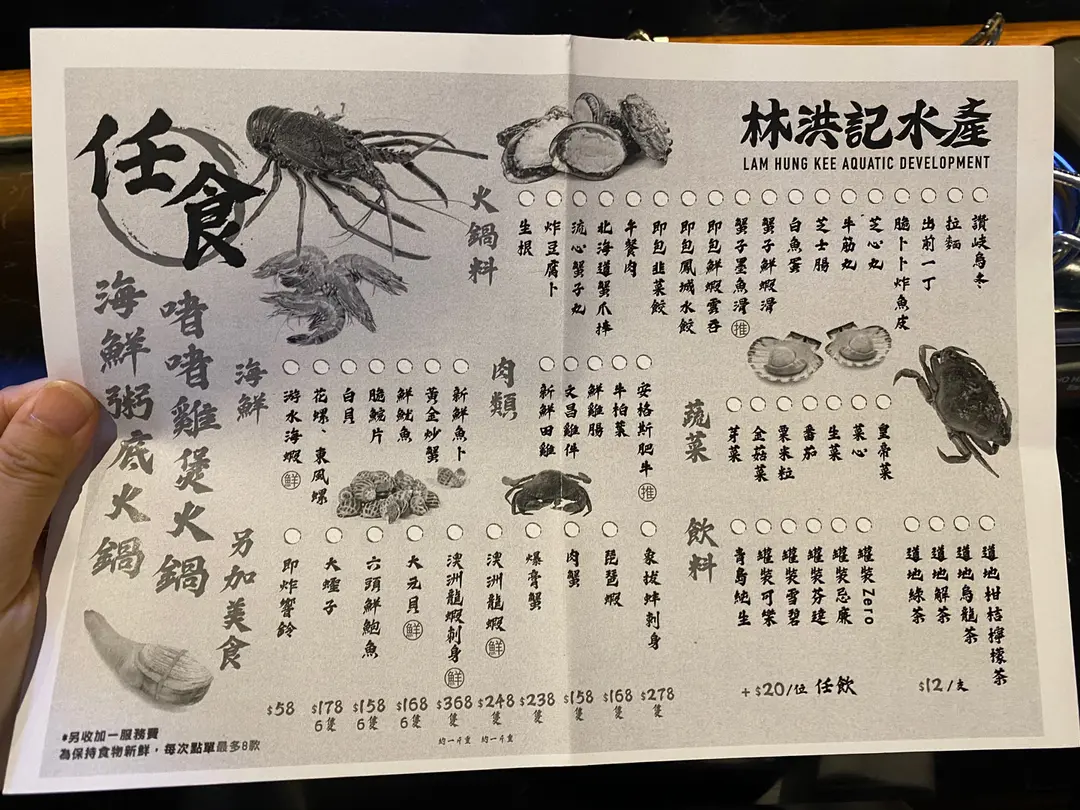 任食
海鮮粥底火鍋
啫啫雞煲火鍋
林洪記水產
LAM HUNG KEE AQUATIC DEVELOPMENT
火鍋料
生根
炸豆腐卜
流心蟹子丸
北海道蟹爪捧
午餐肉
即包韮菜餃
即包鳳城水餃
即包鮮蝦雲吞
蟹子墨魚滑 推
蟹子鮮蝦滑
白魚蛋
芝士腸
牛筋丸
芝心丸
脆卜卜炸魚皮
出前一丁
拉麵
讚岐烏冬
海鮮
游水海蝦 鮮
花螺、東風螺
白貝
脆鯇片
鮮魷魚
黃金炒蟹
新鮮魚卜
肉類
新鮮田雞
文昌雞件
鮮雞腸
牛柏葉
安格斯肥牛 推
蔬菜
芽菜
金菇菜
粟米粒
番茄
生菜
菜心
皇帝菜
另加美食
即炸響鈴 $58
大蟶子 $178 6隻
六頭鮮鮑魚 $158 6隻
大元貝 鮮 $168 6隻
澳洲龍蝦刺身 鮮 $368 隻 約一斤重
澳洲龍蝦 鮮 $248 隻 約一斤重
爆膏蟹 $238 隻
肉蟹 $158 隻
琵琶蝦 $168 隻
象拔蚌刺身 $278 隻
飲料
青島純生
罐裝可樂
罐裝雪碧
罐裝芬達
罐裝忌廉
罐裝Zero
+$20/位 任飲
道地綠茶
道地解茶
道地烏龍茶
道地柑桔檸檬茶
$12/支
*另收加一服務費
為保持食物新鮮，每次點單最多8款